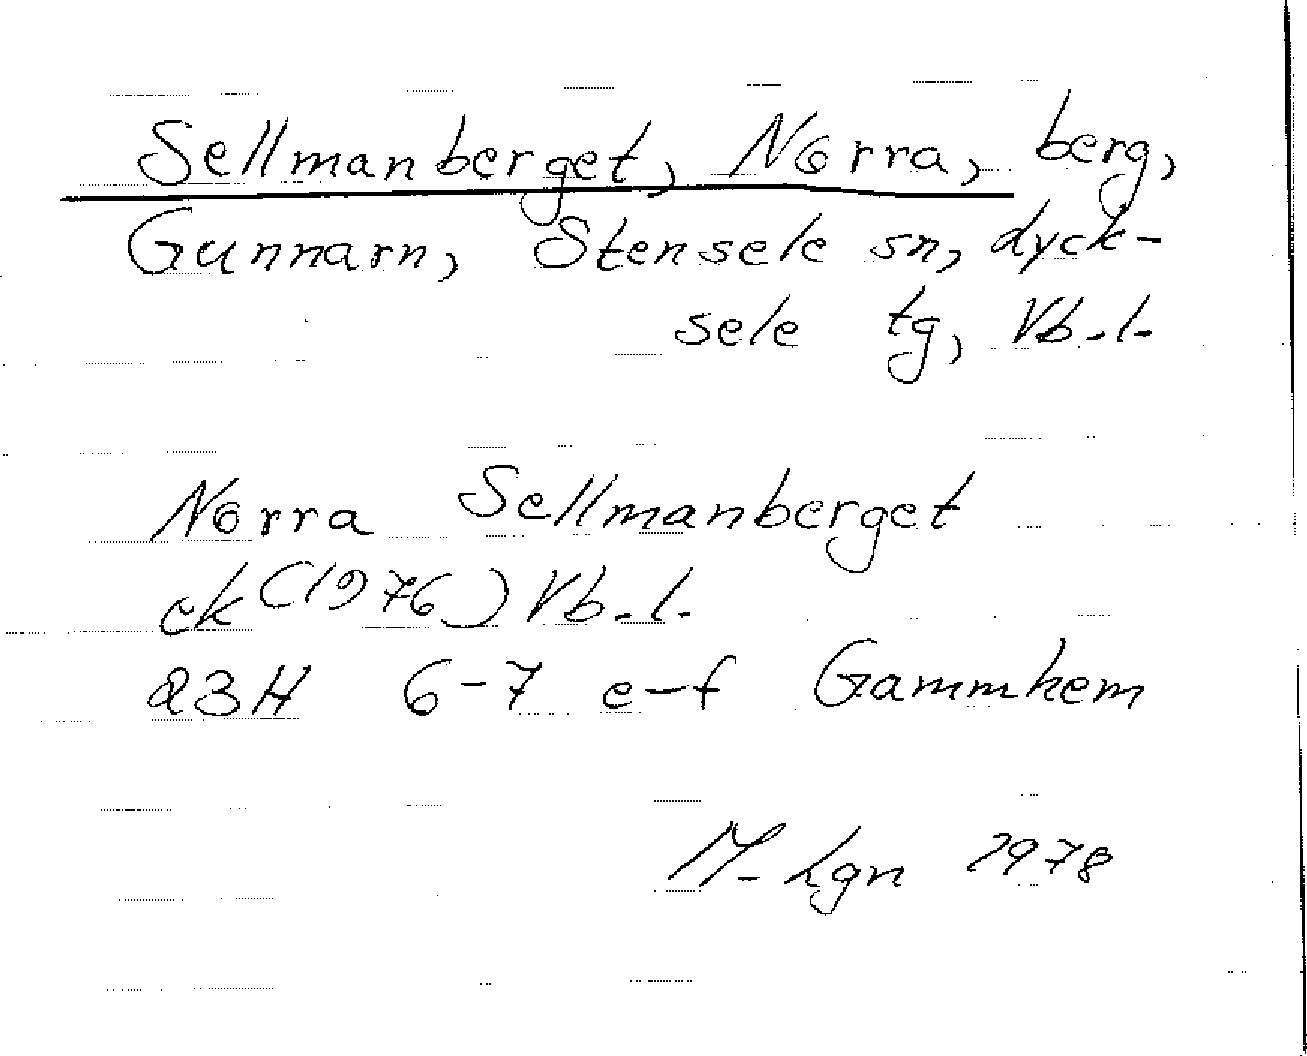 Sellmanberget, Norra, berg,
Gunnarn, Stensele sn, dyck-
sele tg, Vb.l.
Norra Sellmanberget
ek (1976) Vb.l.
23H 6-7 e-f Gammhem
M. Lgn 1978